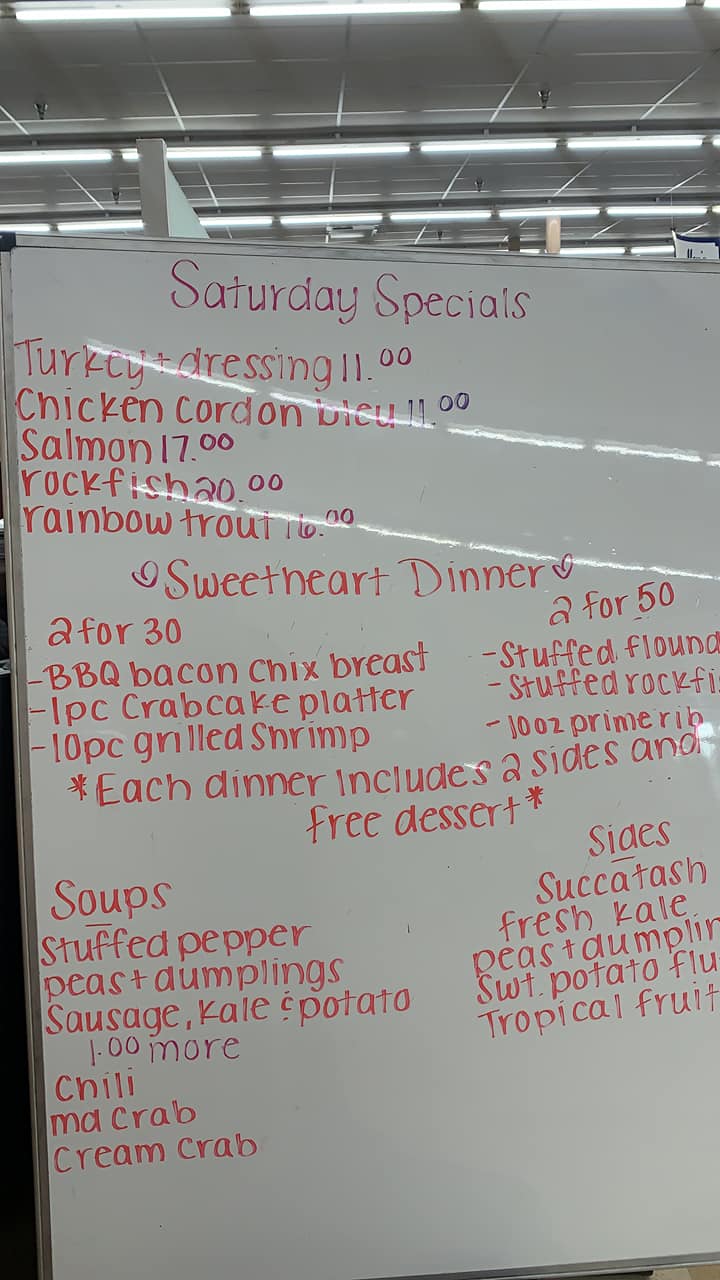 Saturday Specials
Turkey + dressing 11.00
Chicken Cordon bleu 11.00
Salmon 17.00
rockfish 20.00
rainbow trout 16.00
Sweetheart Dinner
2 for 30
-BBQ bacon Chix breast
-1pc Crabcake platter
-10pc grilled Shrimp
2 for 50
-Stuffed flound
-Stuffed rockfi
-10oz prime rib
*Each dinner Includes 2 sides and
free dessert*
Soups
Stuffed pepper
peas + dumplings
Sausage, Kale & potato
1.00 more
Chili
md Crab
Cream Crab
Sides
Succatash
fresh Kale
peas + dumplin
Swt. potato flu
Tropical fruit